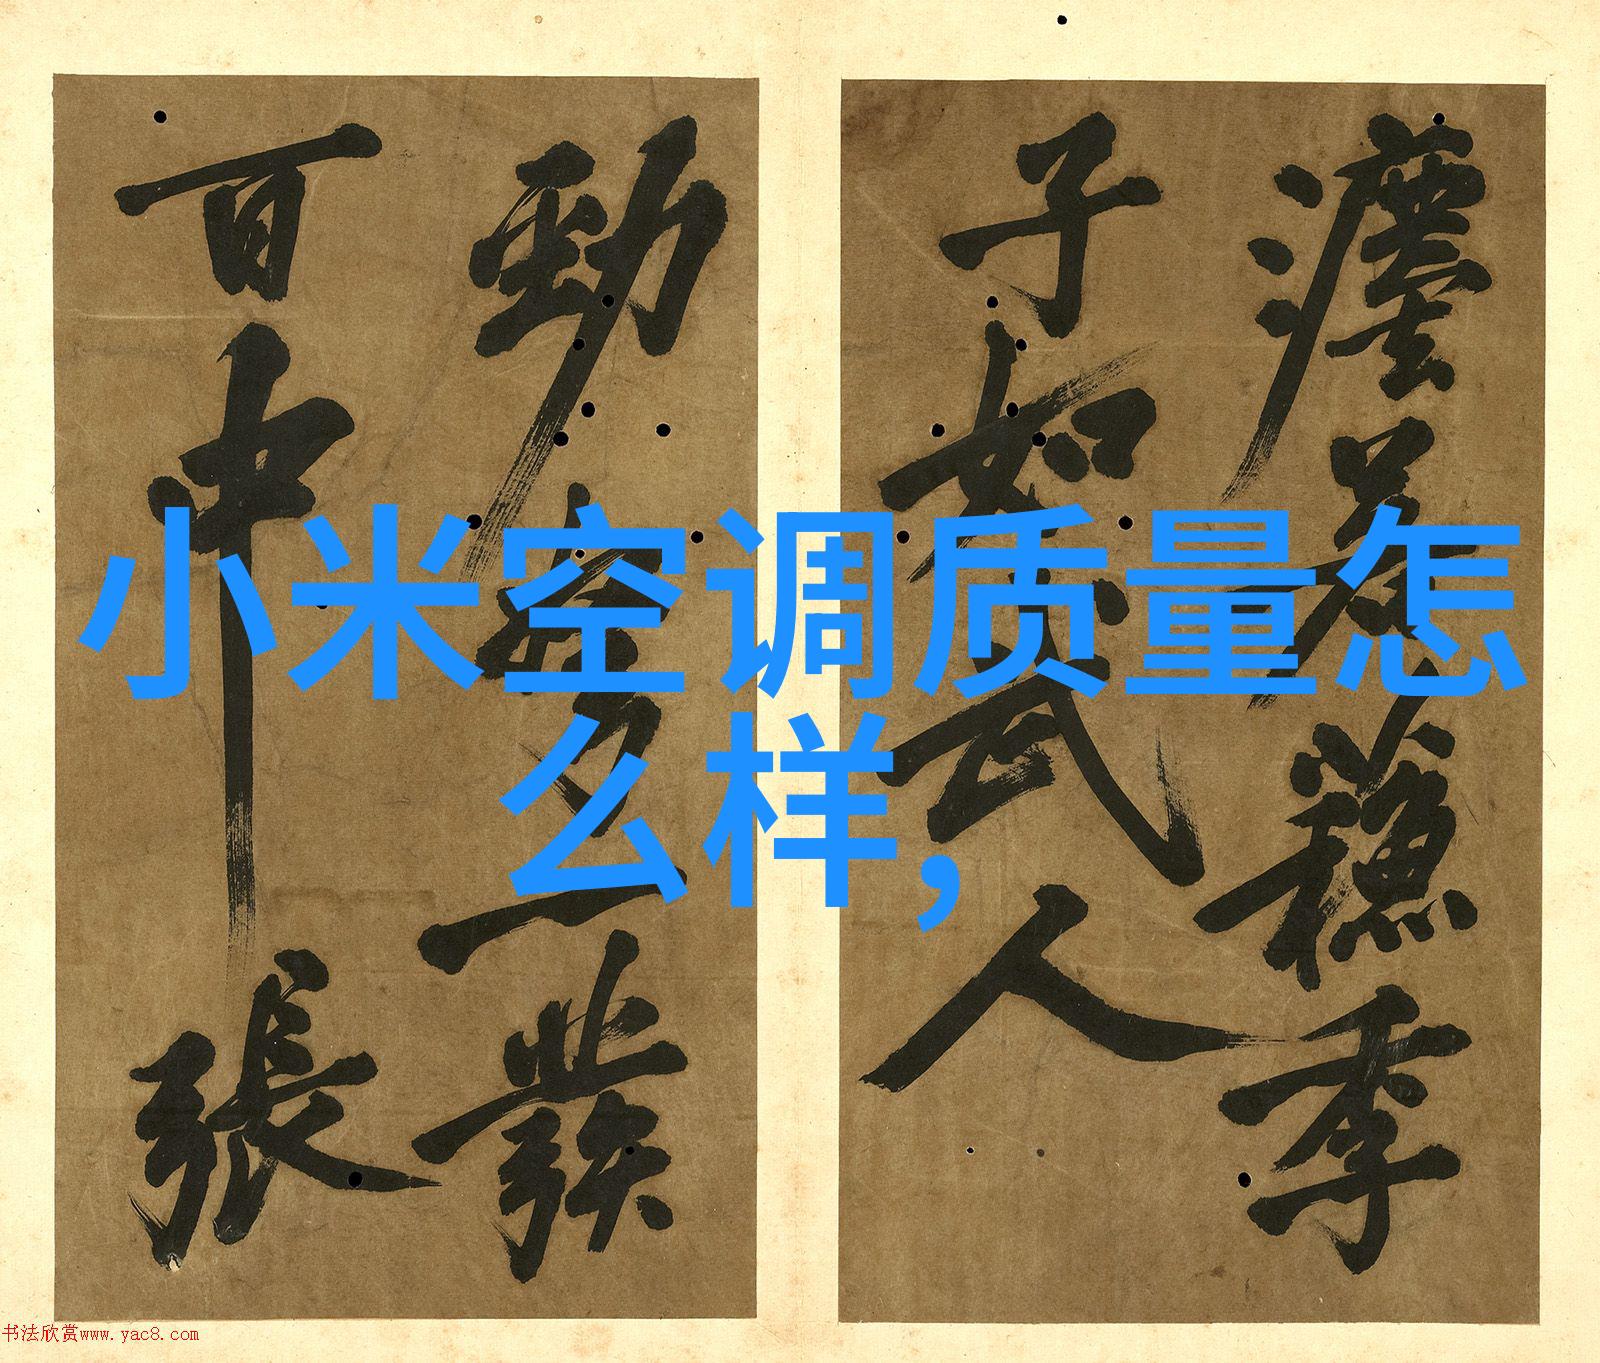 小米空调质量怎
么样,
季
子如武人
勁弩一發
百中張
书法欣赏www.yac8.com